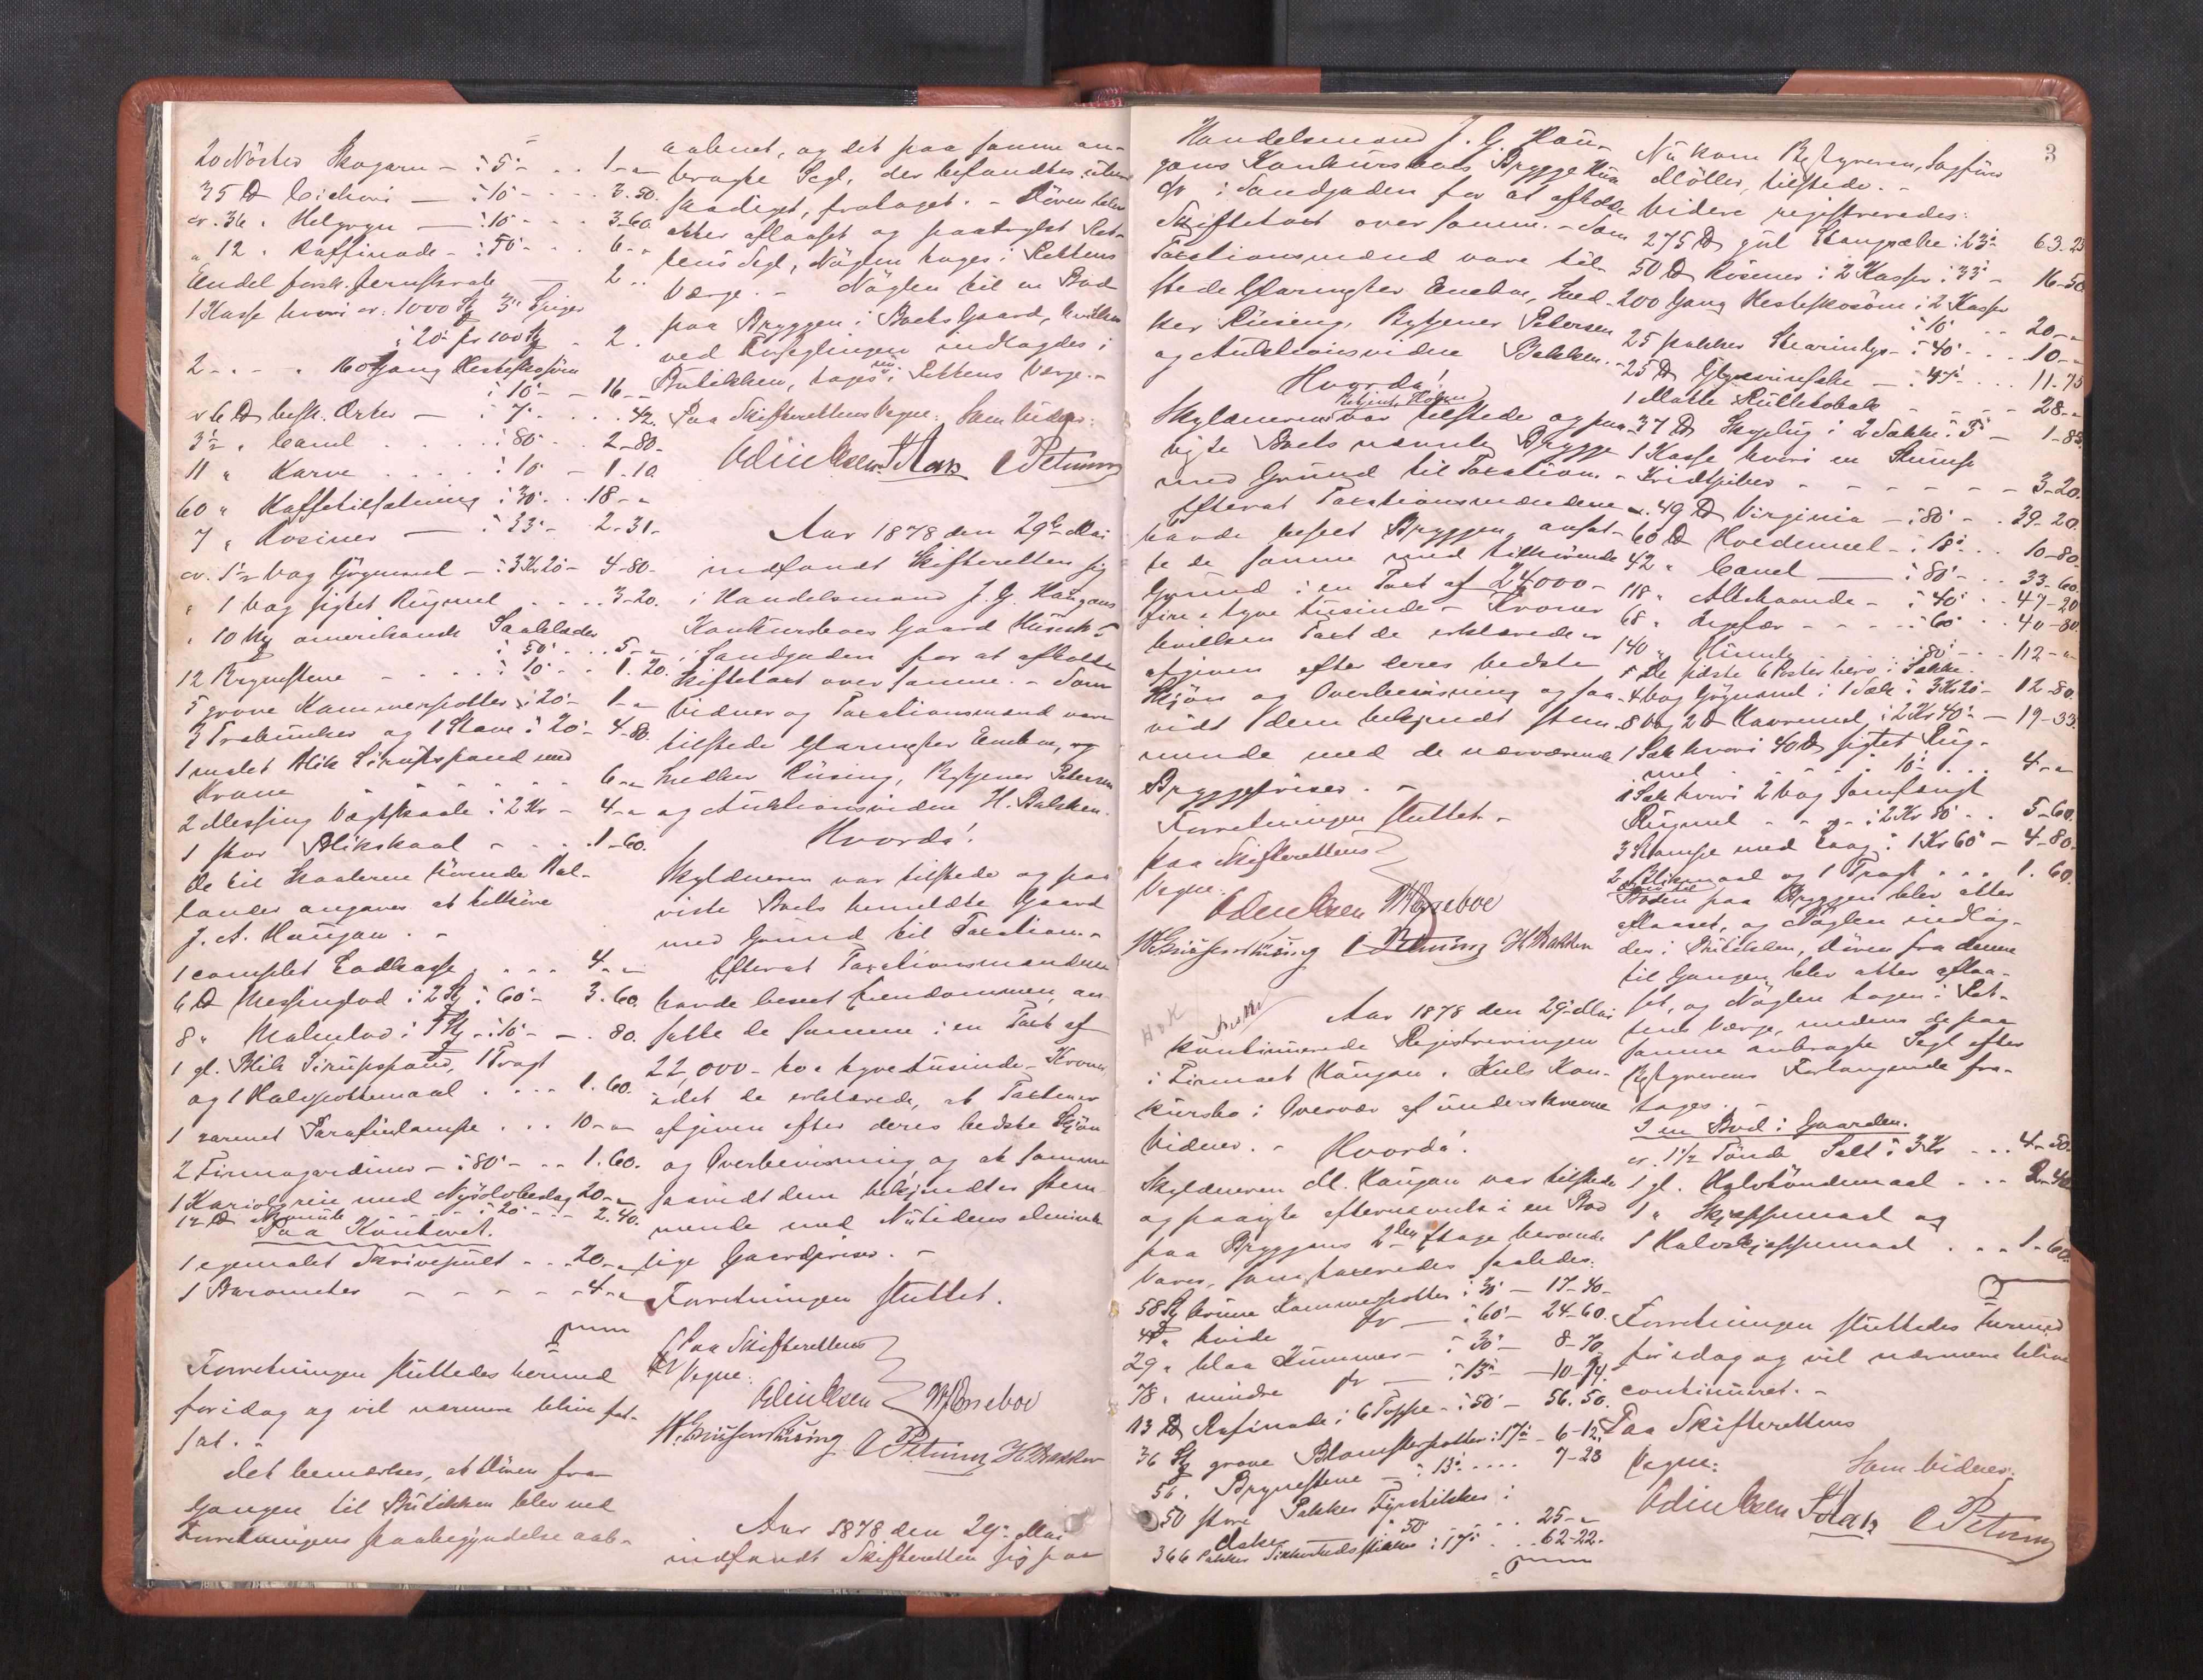 20 Nöster Skogarn - à 5ˢ - . . 1 - "
35 ℔ Cichori — à 10 - . . . 3.50.
cr. 36 " Helgryn — à 10 - . . 3-60
" 12 " Raffinade - à 50 - . . 6 - "
Endel forsk. Jernskrab — 2 . .
1 Kasse hvori cr. 1000 St 3" Spiger
à 20 pr 100 St - 2 .
2 - . - . 160 Gang Hesteskosöm
à 10 - - 16 - -
cr 6 ℔ besk. Erter — à 7 - . . . 42.
3½ " Canel . . . . à 80 - . . 2-80.
11 " Karve . . . . à 10 - 1.10
60 " Kaffetilsætning à 30 - . . 18 - "
7 " Rosiner — à 33 - 2.31 -
cr. 1½ Vog Grynmel - à 3 Kr 20 - 4-80 -
" 1 Vog sigtet Rugmel . . . . 3-20.
" 10 St amerikanske Saalelæder
à 50 . . . 5 - "
12 Brynestene - . . . . à 10 - . . 1.20.
5 grove Kammerpotter à 20 - 1 - "
3 Træbunker og 1 Stave à 20 - 4-80.
1 malet Blik Sirupsspand med
Krane - - - - - - - 6 - "
2 Messing Vægtskaale à 2 Kr - 4 - "
1 stor Blikskaal - - . . 1-60.
De til Skaalerne hörende Bal-
lancer angaves at tilhöre
J. A. Haugan . -
1 complet Lodkasse . . . . 4 - "
6 ℔ Messinglod i 2 St à 60 - 3.60
8 " Malmlod i 5 St à 10 - - . 80.
1 gl. Blik Sirupsspand, 1 Tragt
og 1 Halvpottemaal . . . . 1.60.
1 Parafinlampe . . . 10 - "
2 Firmagardiner - à 80 - . . 1.60.
1 Kariolgrein med Nysölvbeslag 20 - "
12 ℔ à 20 - . . 2.40.
Paa Kontoret.
1 egemalet Skrivepult - . . 20 - "
1 Barometer - - - - - 4 - "
Forretningen sluttedes hermed
foridag og vil nærmere blive fot-
sat. -
Det bemærkes, at Dören fra
Gangen til Butikken blev ved
Forretningens paabegyndelse aab-
aabnet, og det paa samme an-
bragte Segl, der befandtes ube-
skadiget, frataget. - Dören blev
atter aflaaset og paatrykt Ret-
tens Segl, Nöglen tages i Rettens
Værge. - Nöglen til en Bod
paa Bryggen i Boets Gaard, hvilken
ved Forseglingen indlagdes i
Butikken, tages nu i Rettens Værge. -
Paa Skifterettens Vegne. Som Vidner:
C Petersen
Aar 1878 den 29de Mai
indfandt Skifteretten sig
i Handelsmand J. G. Haugans
Konkursboes Gaard
i Sandgaden for at afholde
Skiftetaxt over samme. - Som
Vidner og Taxationsmænd vare
tilstede Glarmester Eneboe, og
Snedker Rüsing, Betjener Petersen
og Auktionsvidne H. Bakken.
Hvorda!
Skyldneren var tilstede og paa
viste Boets bemeldte Gaard
med Grund til Taxation. -
Efterat Taxationsmændene
havde beseet Eiendommen, an-
satte de samme i en Taxt af
22,000 - to og tyve tusinde - Kroner
idet de erklærede, at Taxten er
afgiven efter deres bedste Skjön
og Overbevisning, og at samme
saavidt dem bekjendt er stem-
mende med Nutidens almind
lige Gaardpriser. -
Forretningen sluttet.
Paa Skifterettens
Vegne.
W Eneboe
C Petersen H Bakken
Aar 1878 den 29de Mai
indfandt Skifteretten sig paa
3
Handelsmand J. G. Hau-
gans Konkursboes Brygge
i Sandgaden for at afholde
Skiftetaxt over samme. - Som
Taxtionsmænd vare til-
stede Glarmester Eneboe, Sned-
ker Rüsing, Betjener Petersen
og Auktionsvidne Bakken. -
Hvorda!
Skyldneren var tilstede og paa-
vigte Boets nævnte Brygge
med Grund til Taxation. -
Efterat Taxationsmændene
havde beseet Bryggen, ansat-
te de samme med tilhörende
Grund i en Taxt af 24000 -
fire og tyve tusinde - Kroner
hvilken Taxt de erklærede er
afgiven efter deres bedste
Skjön og Overbevisning og saa
vidt dem bekjendt stem-
mende med de nærværende
Bryggepriser. -
Forretningen sluttet -
paa Skifterettens
Vegne.
W Eneboe
C Petersen H Bakken
Aar 1878 den 29de Mai
kontinuerede Registreringen
i Firmaet Haugan & Kiels Kon-
kursbo i Overvær af underskrevne
Vidner. - Hvorda!
Skyldneren M. Haugan var tilstede
og paavigte efternævnte i en Bod
paa Bryggens 2den Etage beroende
Varer, som taxeredes saaledes:
58 St brune Kammerpotter à 30 - 17-40 -
41 " hvide do — à 60 - 24-60.
29 " blaa Kummer - à 30 - 8-70
78 " mindre do — à 13 - 10-14.
113 ℔ Rafinade i 6 Toppe - à 50 - 56.50.
36 St grove Blomsterpotter à 17 - 6-12.
56 . Brynestene - à 13 - . . . . 7-28
50 store Pakker Fyrstikker i
Æske à 50 . . . . . 25 - "
366 Pakker Sikkerhedsstikker à 17 . . . 62-22.
Nu kom Bestyreren, Sagförer
Möller, tilstede. -
Videre registreredes:
275 ℔ gul Stangsæbe à 23 - 63-25
50 ℔ Rosiner i 2 Kasser à 33 - 16-50
200 Gang Hesteskosöm i 2 Kasser
à 10 . . . 20 - "
25 pakker Stearinlys - à 40 . . . 10 - "
25 ℔ Glycerinsæbe — à 47 . . . 11-75
1 Matte Rulletobak - - - 28 - "
37 ℔ i 2 Sække à 5 - 1-85
1 Kasse hvori en Slump
Kridtpiber - - - - - - 3-20.
cr. 49 ℔ Virginia - à 80 - . 39-20.
60 ℔ Hvedemel - à 18 - . . 10-80.
42 " Canel — à 80 - . . 33-60
118 " Allehaande - à 40 . . 47-20
68 " Ingefær - - - à 60 . . 40-80
140 " à 80 - . . 112 - "
De sidste 6 Poster bero i Sække.
4 Vog Grynmel i 1 Sæk à 3 Kr 20 - 12-80
8 Vog 2 ℔ Havremel à 2 Kr 40 - - 19-33.
1 Sæk hvori 40 ℔ sigtet Rug-
mel . . . . . à 10 - . . . 4 - "
1 Sæk hvori 2 Vog samfængt
Rugmel - - - à 2 Kr 80 . . 5-60.
3 Stampe med Laag à 1 Kr 60 - 4-80 -
2 Blikmaal og 1 Tragt . . . 1.60.
Boden paa Bryggen blev atter
aflaaset, og Nöglen indlag-
des i Butikken, Dören fra denne
til Gangen blev atter aflaa-
set, og Nöglen tagen i Ret-
tens Værge, medens de paa
samme anbragte Segl efter
Bestyrerens Forlangende fra-
tages. -
I en Bod i Gaarden.
cr. 1½ Tönde Salt à 3 Kr . . . 4-50.
1 gl. Halvtöndemaal . . . 2-40
1 " Skjæppemaal og
1 Halvskjæppemaal . . . 1-60.
Forretningen sluttedes hermed
for idag og vil nærmere blive
continueret. -
Paa Skifterettens
Vegne: Som Vidner:
C Petersen